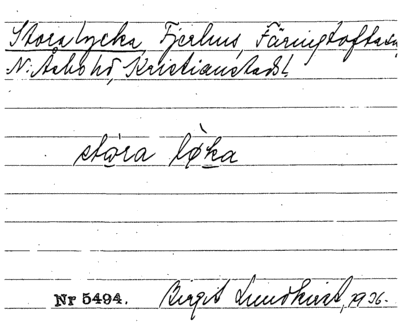 Stora lycka, Fjerhus, Färingtofta sn,
N. Åsbo hd, Kristianstads l.
stóra lø̀ka
Nr 5494. Birgit Lundkvist, 1936.